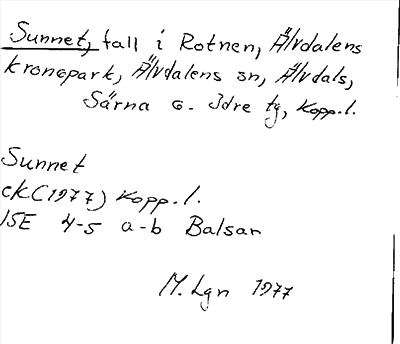 Sunnet, fall i Rotnen, Älvdalens
kronopark, Älvdalens sn, Älvdals,
Särna o. Idre tg, Kopp.l.
Sunnet
ek (1977) Kopp.l.
15E 4-5 a-b Balsan
M. Lgn 1977